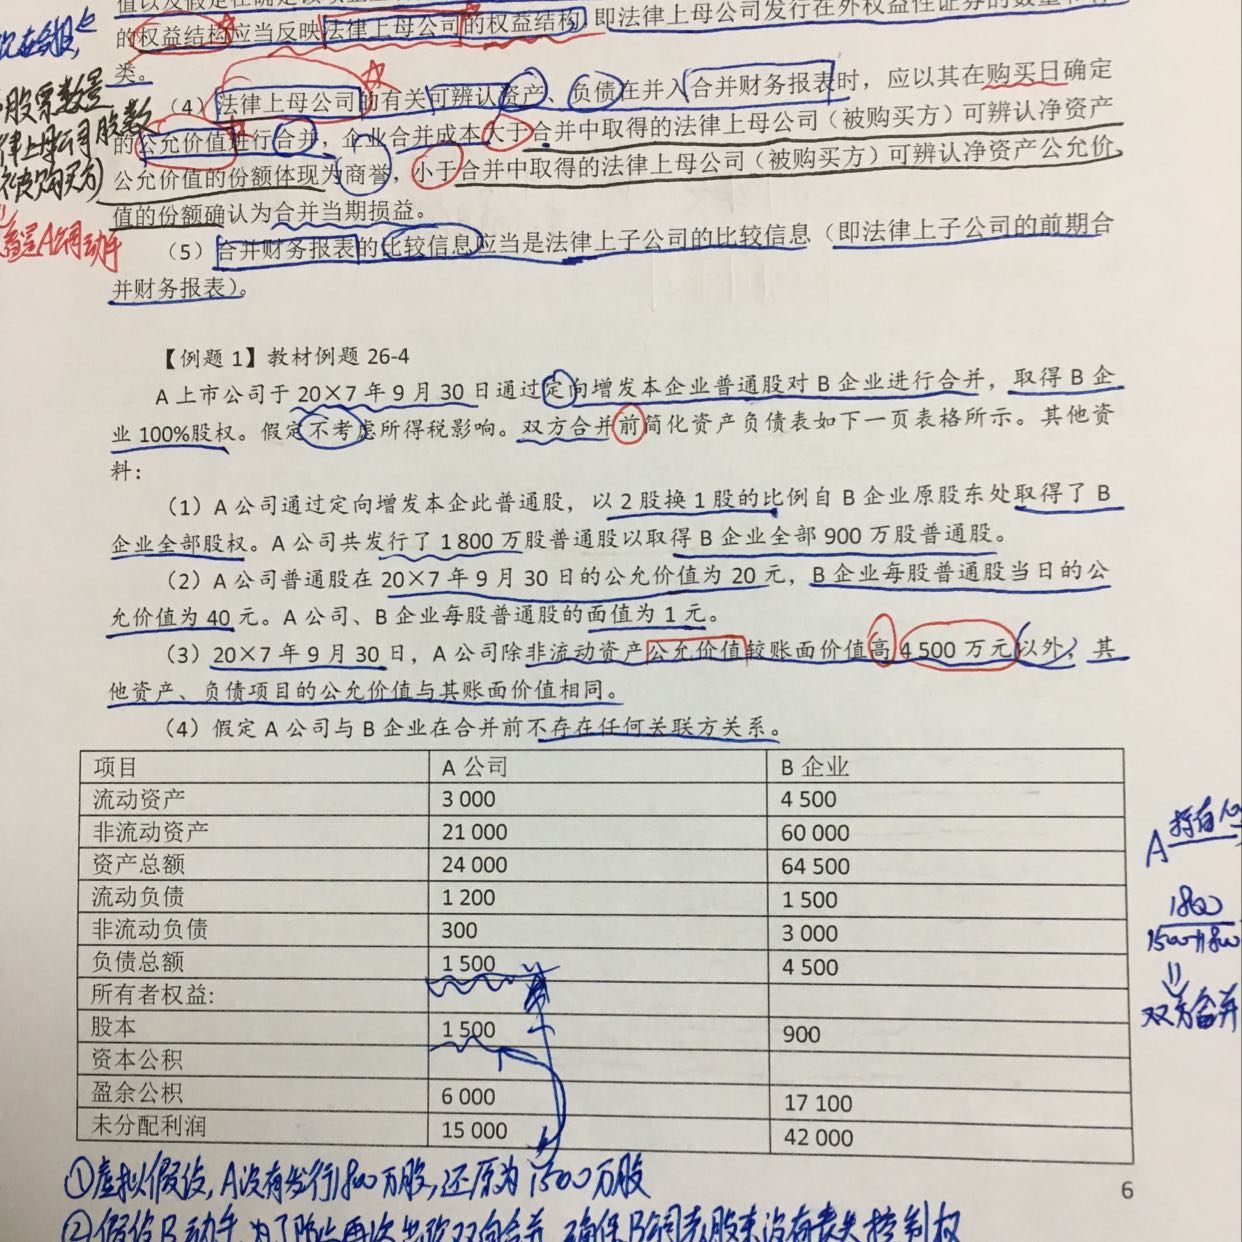 的权益结构应当反映法律上母公司的权益结构,即法律上母公司发行在外权益性证券的数量和种
类。
(4)法律上母公司的有关可辨认资产、负债在并入合并财务报表时,应以其在购买日确定
的公允价值进行合并,企业合并成本大于合并中取得的法律上母公司(被购买方)可辨认净资产
公允价值的份额体现为商誉,小于合并中取得的法律上母公司(被购买方)可辨认净资产公允价
值的份额确认为合并当期损益。
(5)合并财务报表的比较信息应当是法律上子公司的比较信息(即法律上子公司的前期合
并财务报表)。
股票数量
律上母公司股数
被购买方)
【例题1】教材例题 26-4
A 上市公司于 20×7 年 9 月 30 日通过定向增发本企业普通股对 B 企业进行合并,取得 B 企
业 100%股权。假定不考虑所得税影响。双方合并前简化资产负债表如下一页表格所示。其他资
料:
(1)A 公司通过定向增发本企此普通股,以 2 股换 1 股的比例自 B 企业原股东处取得了 B
企业全部股权。A 公司共发行了 1 800 万股普通股以取得 B 企业全部 900 万股普通股。
(2)A 公司普通股在 20×7 年 9 月 30 日的公允价值为 20 元,B 企业每股普通股当日的公
允价值为 40 元。A 公司、B 企业每股普通股的面值为 1 元。
(3)20×7 年 9 月 30 日,A 公司除非流动资产公允价值较账面价值高 4 500 万元以外,其
他资产、负债项目的公允价值与其账面价值相同。
(4)假定 A 公司与 B 企业在合并前不存在任何关联方关系。
项目 A 公司 B 企业
流动资产 3 000 4 500
非流动资产 21 000 60 000
资产总额 24 000 64 500
流动负债 1 200 1 500
非流动负债 300 3 000
负债总额 1 500 4 500
所有者权益:
股本 1 500 900
资本公积
盈余公积 6 000 17 100
未分配利润 15 000 42 000
A 持有
1800
1500+1800
双方合并
①虚拟假设,A没有发行1800万股,还原为1500万股
②假设B动手,为了防止再次出现双向合并,确保B公司老股东没有丧失控制权
6